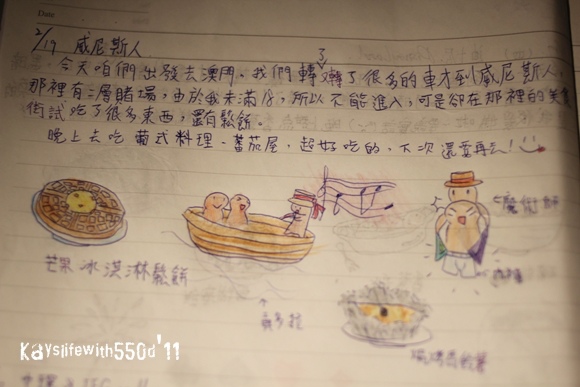 Date
2/19 威尼斯人
今天咱們出發去澳門。我們轉了很多的車才到威尼斯人,
那裡有三層賭場,由於我未滿18,所以不能進入,可是卻在那裡的美食
街試吃了很多東西,還有鬆餅。
晚上去吃葡式料理、蕃茄屋,超好吃的,下次還要再去!
魔術師
芒果冰淇淋鬆餅
貢多拉
Kayslifewith550d'11